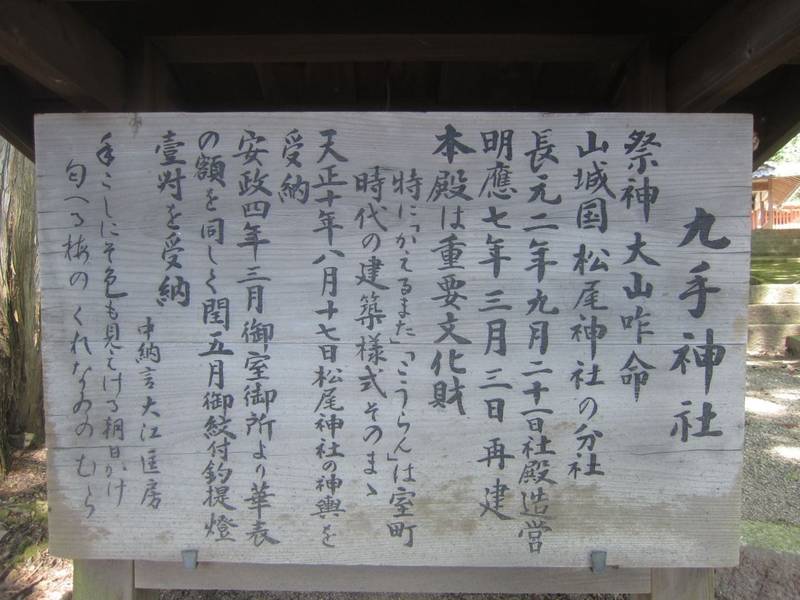 九手神社
祭神 大山咋命
山城国 松尾神社の分社
長元二年九月二十一日社殿造営
明應七年三月三日再建
本殿は重要文化財
特に「かえるまた」「こうらん」は室町
時代の建築様式そのまゝ
天正十年八月十七日松尾神社の神輿を
受納
安政四年三月御室御所より華表
の額を同じく閏五月御紋付釣提燈
壹対を受納
中納言大江匡房
にそ色も見えける朝日かけ
匂へる梅の くれなゐの むら